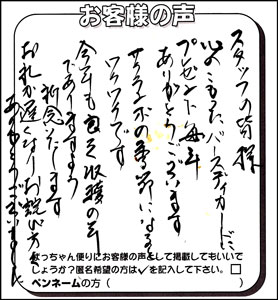 お客様の声
スタッフの皆様
心のこもったバースディカードに
プレゼント毎年
ありがとうございます
サクランボの季節になると
ワクワクです
今年も良き収穫の年
でありますよう
祈念いたします
お礼が遅くなりお詫び方々
ありがとうございました
なっちゃん便りにお客様の声として掲載してもいいで
しょうか?匿名希望の方は✓を記入して下さい。□
ペンネームの方( )